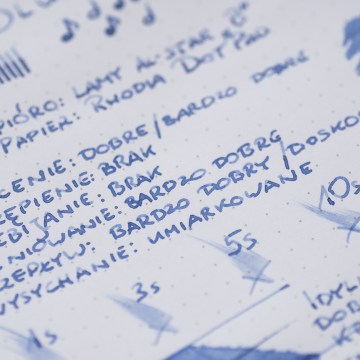 PIÓRO: LAMY AL-STAR
PAPIER: RHODIA DOT PAD
CENIE: DOBRE/BARDZO DOBRE
ĘPIENIE: BRAK
EBIJANIE: BRAK
NIOWANIE: BARDZO DOBRE
ZEPŁYW: BARDZO DOBRY/DOSKO
WYSYCHANIE: UMIARKOWANE
1s
3s
5s
10s
IDYL
DOB